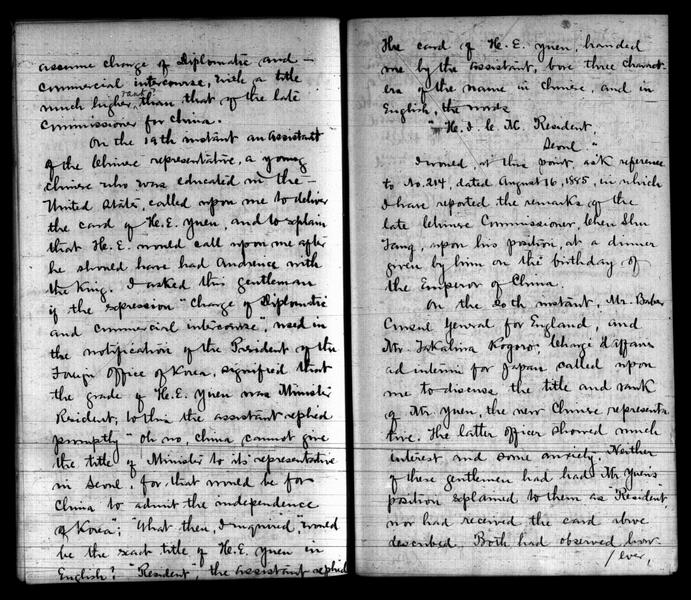 assume charge of Diplomatic and -
commercial intercourse, with a title
much higher, rank than, that of the late
Commissioner for China.
On the 19th instant an assistant
of the Chinese representative, a young
Chinese who was educated in the -
United States, called upon me to deliver
the card of H.E. Yuen, and to explain
that H.E. would call upon me after
he should have had Audience with
the King. I asked this gentleman
if the expression "Charge of Diplomatic
and Commercial intercourse", used in
the notification of the President of the
Foreign Office of Korea, signified that
the grade of H.E. Yuen was Minister
Resident; to this the assistant replied
promptly "Oh no, China cannot give
the title of Minister to its representative
in Seoul, for that would be for
China to admit the independence
of Korea"; "What then, I inquired, "would
be the exact title of H.E. Yuen in
English? "Resident", the assistant replied
The card of H.E. Yuen, handed
me by the assistant, bore three charact-
ers of the name in Chinese, and in
English, the words
"H. I. C. M. Resident,
Seoul."
I would, at this point, ask reference
to No. 214, dated August 16, 1885, in which
I have reported the remarks of the
late Chinese Commissioner, Chen Shu
Tang, upon his position, at a dinner
given by him on the birthday of
the Emperor of China.
On the 20th instant, Mr. Baber
Consul General for England, and
Mr. Takahira Kogoro, Chargé d'affaires
ad interim for Japan called upon
me to discuss the title and rank
of Mr. Yuen, the new Chinese representa-
tive. The latter officer showed much
interest and some anxiety. Neither
of these gentlemen had had Mr Yuen's
position explained to them as "Resident",
nor had received the card above
described. Both had observed how-
/ever,